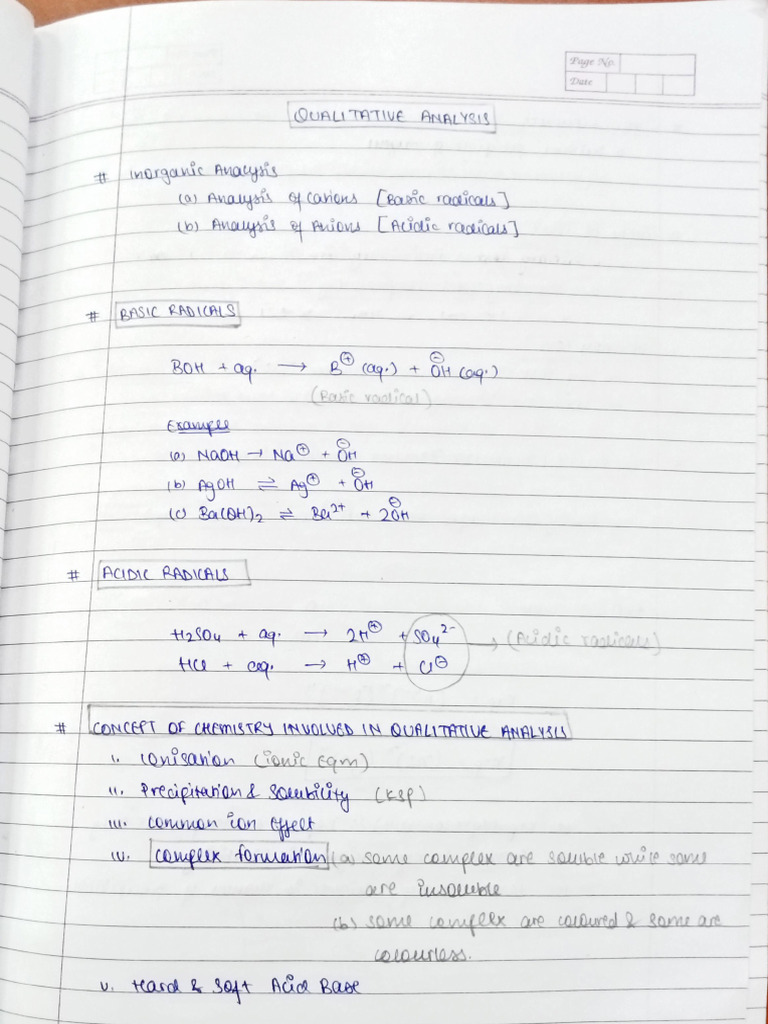 Page No.
Date
QUALITATIVE ANALYSIS
# Inorganic Analysis
(a) Analysis of Cations [Basic radicals]
(b) Analysis of Anions [Acidic radicals]
# BASIC RADICALS
BOH + aq. → B⊕ (aq.) + OH⊖ (aq.)
(Basic radical)
Example
(a) NaOH → Na⊕ + OH⊖
(b) AgOH ⇌ Ag⊕ + OH⊖
(c) Ba(OH)₂ ⇌ Ba²⁺ + 2OH⊖
# ACIDIC RADICALS
H₂SO₄ + aq. → 2H⊕ + SO₄²⁻ → (Acidic radicals)
HCl + aq. → H⊕ + Cl⊖
# CONCEPT OF CHEMISTRY INVOLVED IN QUALITATIVE ANALYSIS
i. Ionisation (ionic Eqm)
ii. Precipitation & Solubility (Ksp)
iii. Common ion Effect
iv. Complex formation (a) some complex are soluble while some
are insoluble
(b) some complex are coloured & some are
colourless.
v. Hard & Soft Acid Base